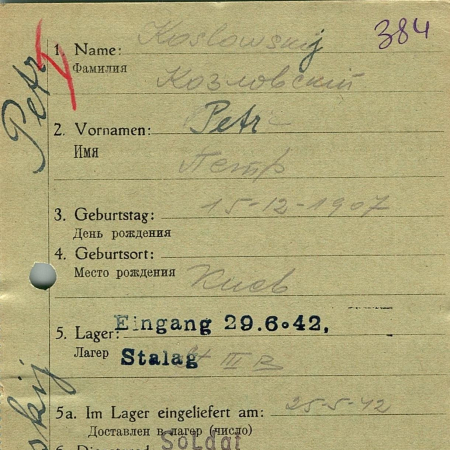 384
Petr
1. Name: Koslowskij
Фамилия Козловский
2. Vornamen: Petr
Имя Петр
3. Geburtstag: 15-12-1907
День рождения
4. Geburtsort:
Место рождения Киев
Eingang 29.6.42,
5. Lager:
Лагер Stalag III B
5a. Im Lager eingeliefert am: 25-5-42
Доставлен в лагер (число)
Soldat
skij